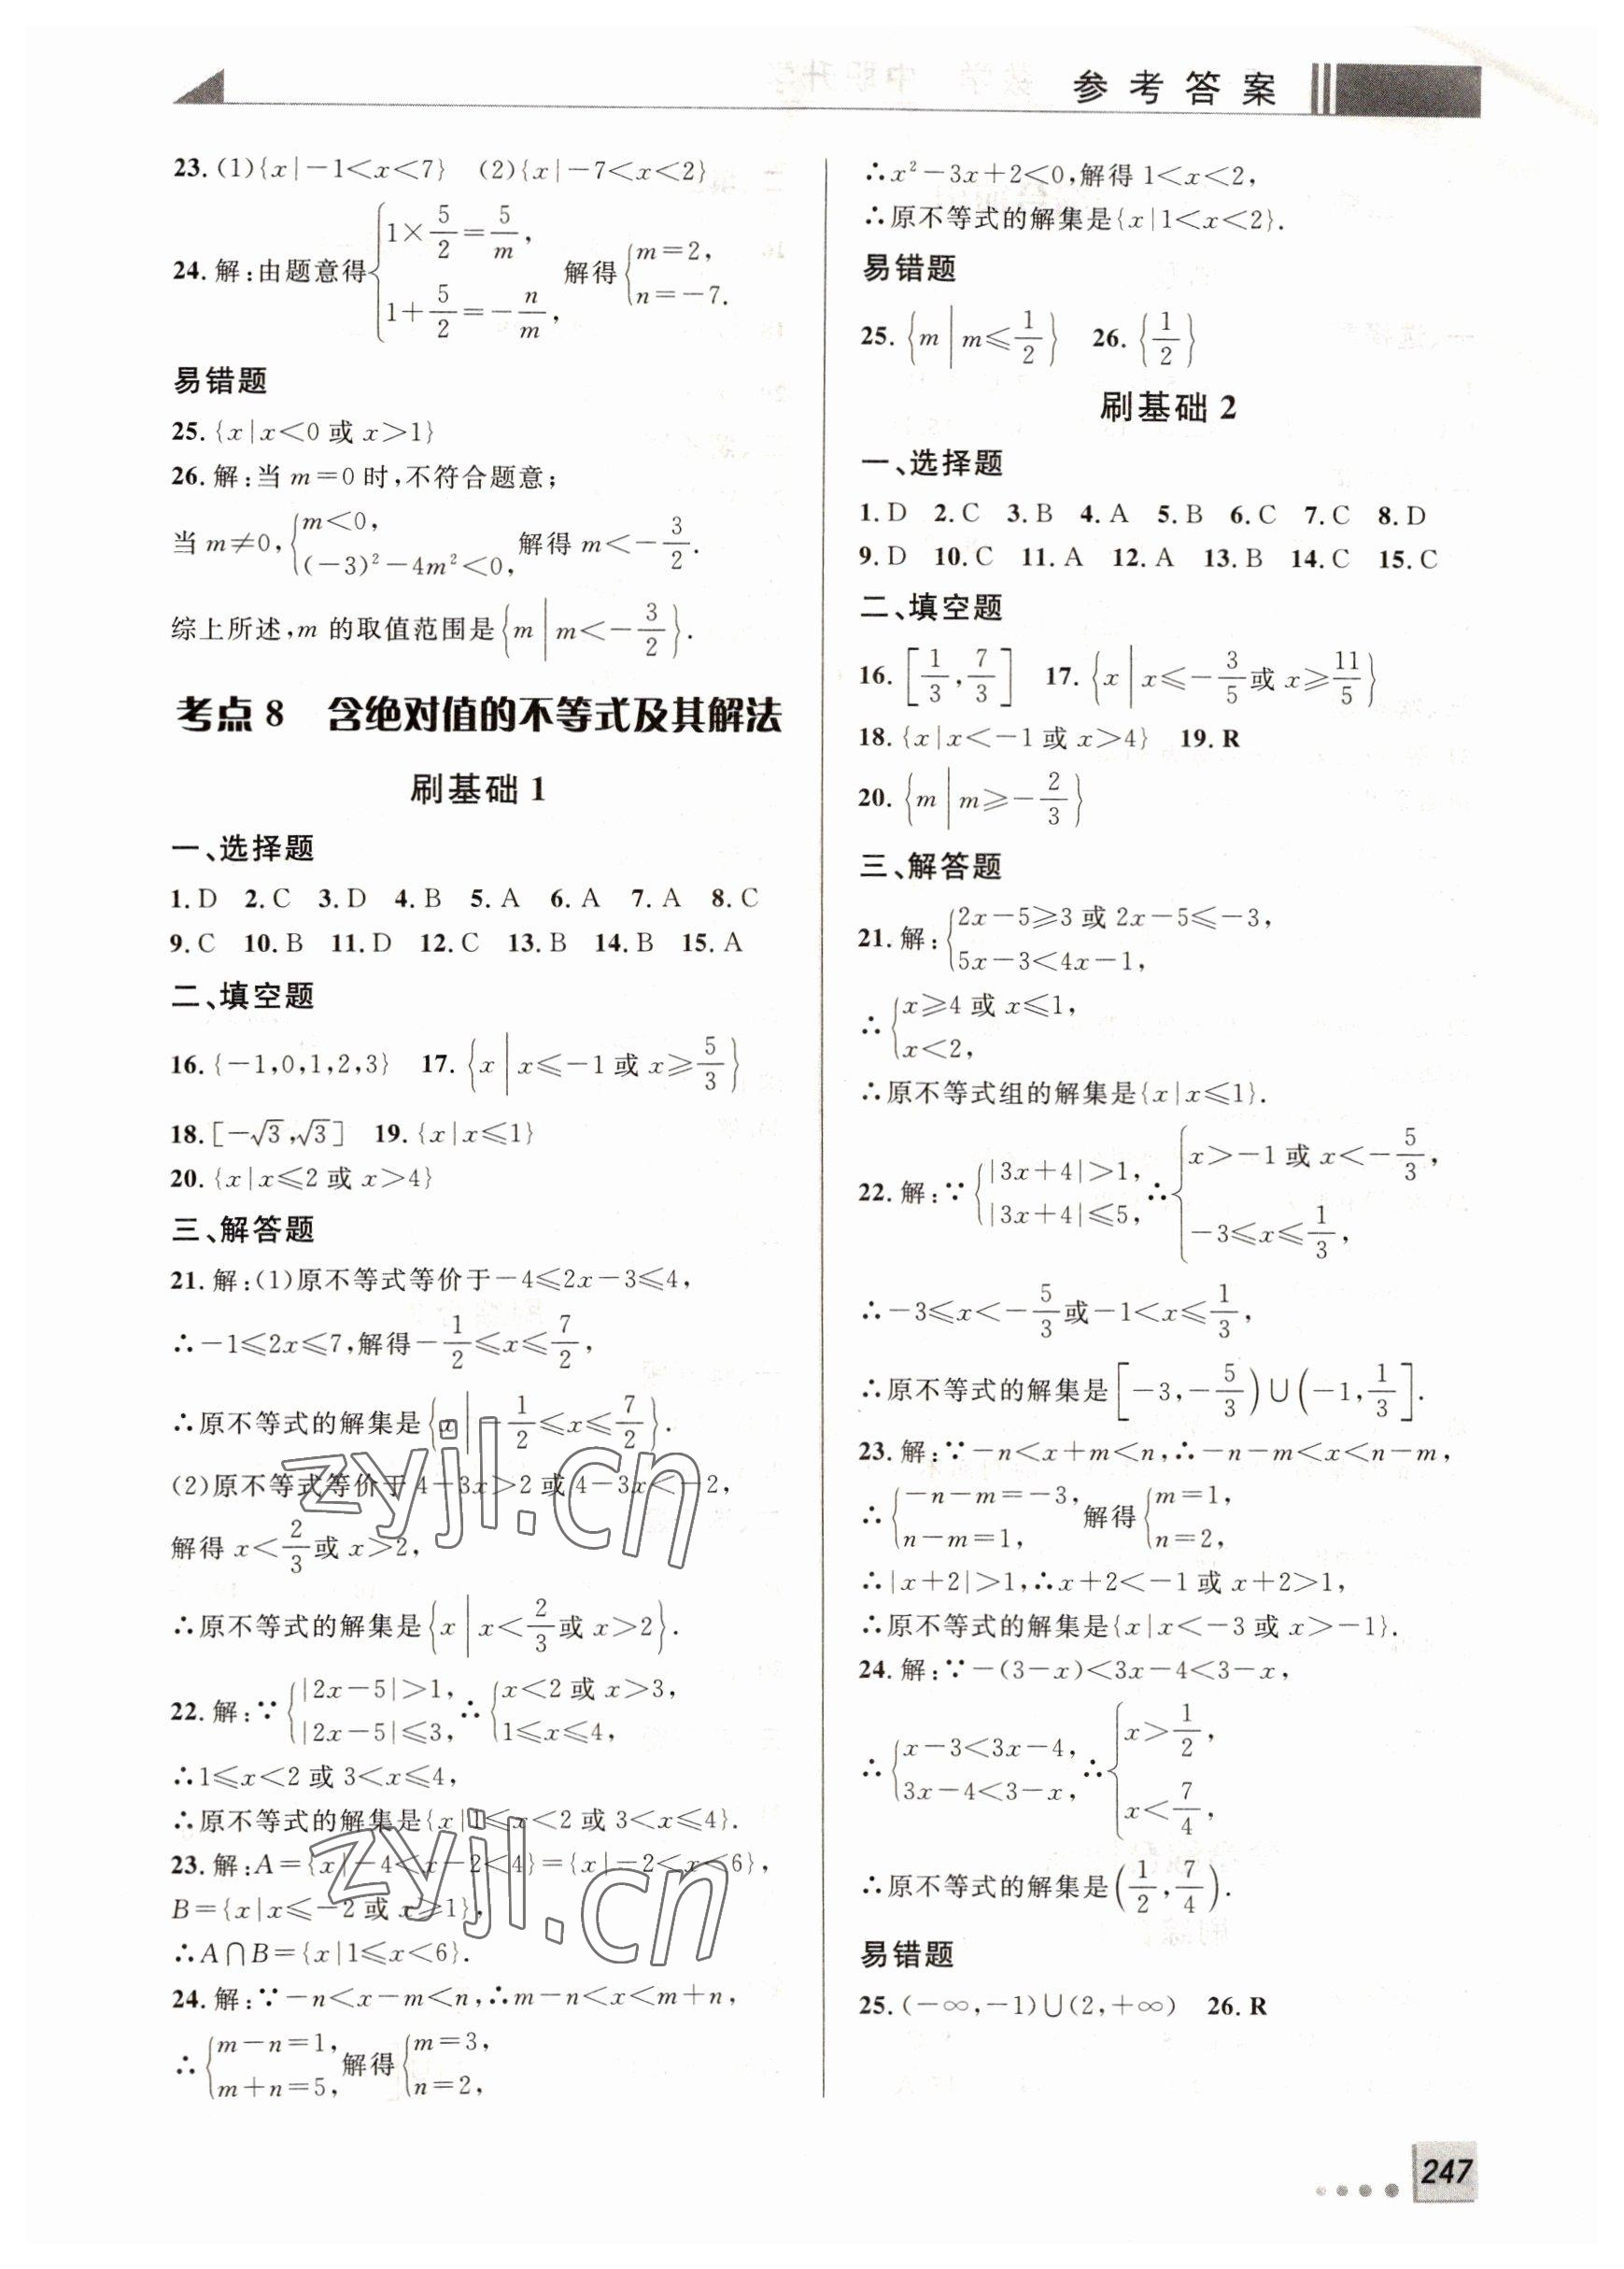 参考答案
23. (1){x|－1＜x＜7}　(2){x|－7＜x＜2}
24. 解:由题意得{1×5/2＝5/m, 1＋5/2＝－n/m, 解得{m＝2, n＝－7.
易错题
25. {x|x＜0 或 x＞1}
26. 解:当 m＝0 时,不符合题意;
当 m≠0,{m＜0, (－3)²－4m²＜0, 解得 m＜－3/2.
综上所述,m 的取值范围是{m|m＜－3/2}.
考点 8　含绝对值的不等式及其解法
刷基础 1
一、选择题
1. D　2. C　3. D　4. B　5. A　6. A　7. A　8. C
9. C　10. B　11. D　12. C　13. B　14. B　15. A
二、填空题
16. {－1,0,1,2,3}　17. {x|x≤－1 或 x≥5/3}
18. [－√3,√3]　19. {x|x≤1}
20. {x|x≤2 或 x＞4}
三、解答题
21. 解:(1)原不等式等价于－4≤2x－3≤4,
∴－1≤2x≤7,解得－1/2≤x≤7/2,
∴原不等式的解集是{x|－1/2≤x≤7/2}.
(2)原不等式等价于 4－3x＞2 或 4－3x＜－2,
解得 x＜2/3 或 x＞2,
∴原不等式的解集是{x|x＜2/3 或 x＞2}.
22. 解:∵{|2x－5|＞1, |2x－5|≤3, ∴{x＜2 或 x＞3, 1≤x≤4,
∴1≤x＜2 或 3＜x≤4,
∴原不等式的解集是{x|1≤x＜2 或 3＜x≤4}.
23. 解:A＝{x|－4＜x－2＜4}＝{x|－2＜x＜6},
B＝{x|x≤－2 或 x≥1},
∴A∩B＝{x|1≤x＜6}.
24. 解:∵－n＜x－m＜n,∴m－n＜x＜m＋n,
∴{m－n＝1, m＋n＝5, 解得{m＝3, n＝2,
∴x²－3x＋2＜0,解得 1＜x＜2,
∴原不等式的解集是{x|1＜x＜2}.
易错题
25. {m|m≤1/2}　26. {1/2}
刷基础 2
一、选择题
1. D　2. C　3. B　4. A　5. B　6. C　7. C　8. D
9. D　10. C　11. A　12. A　13. B　14. C　15. C
二、填空题
16. [1/3,7/3]　17. {x|x≤－3/5 或 x≥11/5}
18. {x|x＜－1 或 x＞4}　19. R
20. {m|m≥－2/3}
三、解答题
21. 解:{2x－5≥3 或 2x－5≤－3, 5x－3＜4x－1,
∴{x≥4 或 x≤1, x＜2,
∴原不等式组的解集是{x|x≤1}.
22. 解:∵{|3x＋4|＞1, |3x＋4|≤5, ∴{x＞－1 或 x＜－5/3, －3≤x≤1/3,
∴－3≤x＜－5/3 或－1＜x≤1/3,
∴原不等式的解集是[－3,－5/3)∪(－1,1/3].
23. 解:∵－n＜x＋m＜n,∴－n－m＜x＜n－m,
∴{－n－m＝－3, n－m＝1, 解得{m＝1, n＝2,
∴|x＋2|＞1,∴x＋2＜－1 或 x＋2＞1,
∴原不等式的解集是{x|x＜－3 或 x＞－1}.
24. 解:∵－(3－x)＜3x－4＜3－x,
∴{x－3＜3x－4, 3x－4＜3－x, ∴{x＞1/2, x＜7/4,
∴原不等式的解集是(1/2,7/4).
易错题
25. (－∞,－1)∪(2,＋∞)　26. R
zyjl.cn
zyjl.cn
247